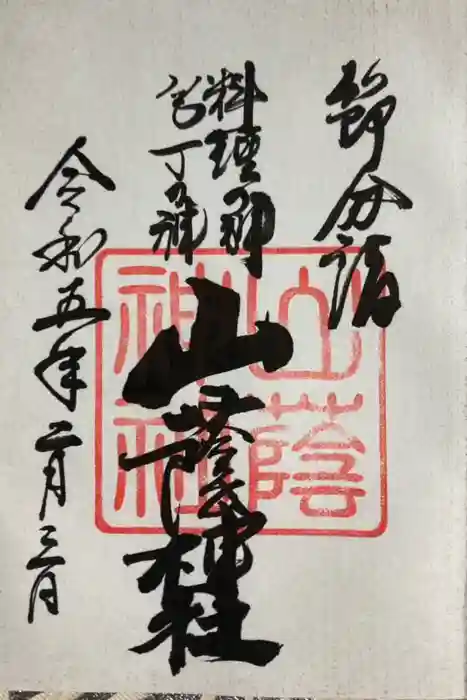 節分詣
料理神
包丁の神
山蔭神社
令和五年二月三日
山蔭
神社